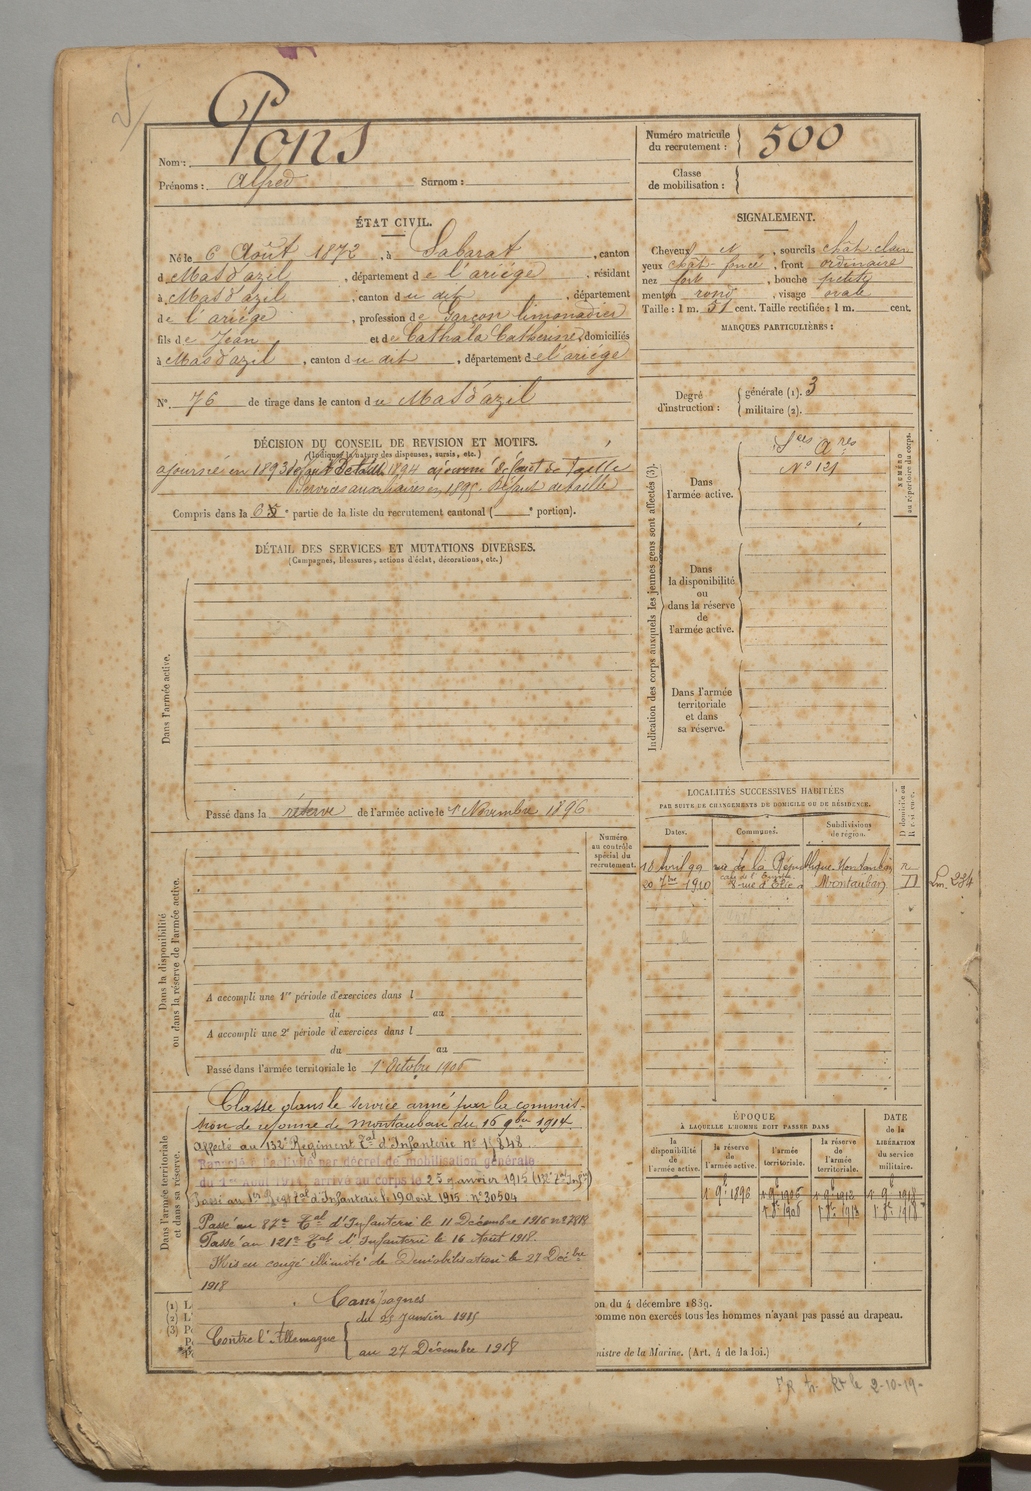 Nom : Pons
Prénoms : Alfred Surnom :
Numéro matricule du recrutement : 500
Classe de mobilisation :
ÉTAT CIVIL.
Né le 6 Août 1872, à Sabarat, canton
d Mas d'azil, département de l'ariége, résidant
à Mas d'azil, canton du dit, département
de l'ariége, profession de Garçon limonadier
fils de Jean et de Cathala Catherine, domiciliés
à Mas d'azil, canton du dit, département de l'ariége
N° 76 de tirage dans le canton du Mas d'azil
SIGNALEMENT.
Cheveux N, sourcils chât. clair
yeux chât. foncé, front ordinaire
nez fort, bouche petite
menton rond, visage ovale
Taille : 1 m. 51 cent. Taille rectifiée : 1 m. cent.
MARQUES PARTICULIÈRES :
Degré d'instruction : générale (1). 3
militaire (2).
DÉCISION DU CONSEIL DE REVISION ET MOTIFS.
(Indiquer la nature des dispenses, sursis, etc.)
ajourné en 1893 défaut de taille, 1894 ajourné défaut de taille
Services auxiliaires en 1895. Défaut de taille
Compris dans la 6 e partie de la liste du recrutement cantonal ( e portion).
DÉTAIL DES SERVICES ET MUTATIONS DIVERSES.
(Campagnes, blessures, actions d'éclat, décorations, etc.)
Dans l'armée active.
Passé dans la réserve de l'armée active le 1er Novembre 1896
Indication des corps auxquels les jeunes gens sont affectés (3).
Dans l'armée active.
Sces Ares
N° 121
NUMÉRO au répertoire du corps.
Dans la disponibilité ou dans la réserve de l'armée active.
Dans l'armée territoriale et dans sa réserve.
LOCALITÉS SUCCESSIVES HABITÉES
PAR SUITE DE CHANGEMENTS DE DOMICILE OU DE RÉSIDENCE.
Dates. Communes. Subdivisions de région. D domicile ou R résidence.
18 Avril 99 rue de la République. Montauban R
20 7bre 1910 8 rue d'Elie Montauban D Lm. 234
Numéro au contrôle spécial du recrutement.
Dans la disponibilité ou dans la réserve de l'armée active.
A accompli une 1re période d'exercices dans l
du au
A accompli une 2e période d'exercices dans l
du au
Passé dans l'armée territoriale le 1er Octobre 1906
Dans l'armée territoriale et dans sa réserve.
Classé dans le service armé par la commis-
sion de réforme de Montauban du 16 9bre 1914.
Affecté au 132e Régiment Tal d'Infanterie n° 1848
Rappelé à l'activité par décret de mobilisation générale
du 1er Août 1914, arrivé au corps le 25 janvier 1915 (132e Tal Infie)
Passé au Regt Tal d'Infanterie le 19 Août 1915 n° 30504
Passé au 87e Tal d'Infanterie le 11 Décembre 1916 n° 7818
Passé au 121e Tal d'Infanterie le 16 Août 1918.
Mis en congé illimité de Démobilisation le 27 Décbre
1918
Campagnes
Contre l'Allemagne du 25 Janvier 1915
au 27 Décembre 1918
ÉPOQUE
À LAQUELLE L'HOMME DOIT PASSER DANS
la disponibilité de l'armée active. la réserve de l'armée active. l'armée territoriale. la réserve de l'armée territoriale.
DATE de la LIBÉRATION du service militaire.
1 9bre 1896 1 9bre 1906 1 9bre 1912 1 9bre 1918
1 8bre 1906 1 8bre 1918
(1) L
(2) L'
(3) P
on du 4 décembre 1889.
comme non exercés tous les hommes n'ayant pas passé au drapeau.
nistre de la Marine. (Art. 4 de la loi.)
le 2-10-19-